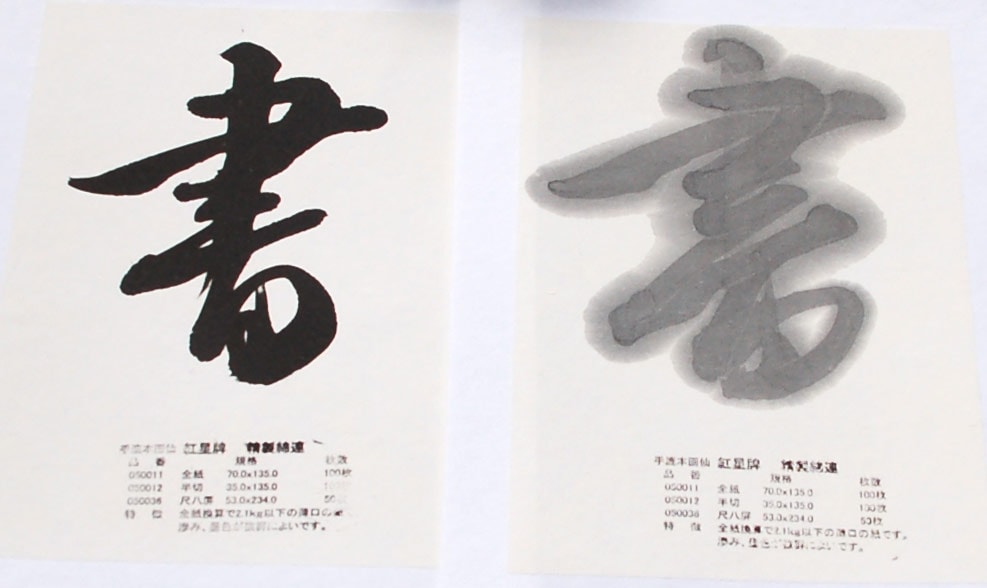 書
手漉本画仙 紅星牌 精製綿連
品番 規格 枚数
050011 全紙 70.0×135.0 100枚
050012 半切 35.0×135.0
050036 尺八屏 53.0×234.0
特徴 全紙換算で2.1kg以下の薄口の紙
滲み、墨色が抜群によいです。
書
手漉本画仙 紅星牌 精製綿連
品番 規格 枚数
050011 全紙 70.0×135.0 100枚
050012 半切 35.0×135.0 100枚
050036 尺八屏 53.0×234.0 50枚
特徴 全紙換算で2.1kg以下の薄口の紙です。
滲み、墨色が抜群によいです。